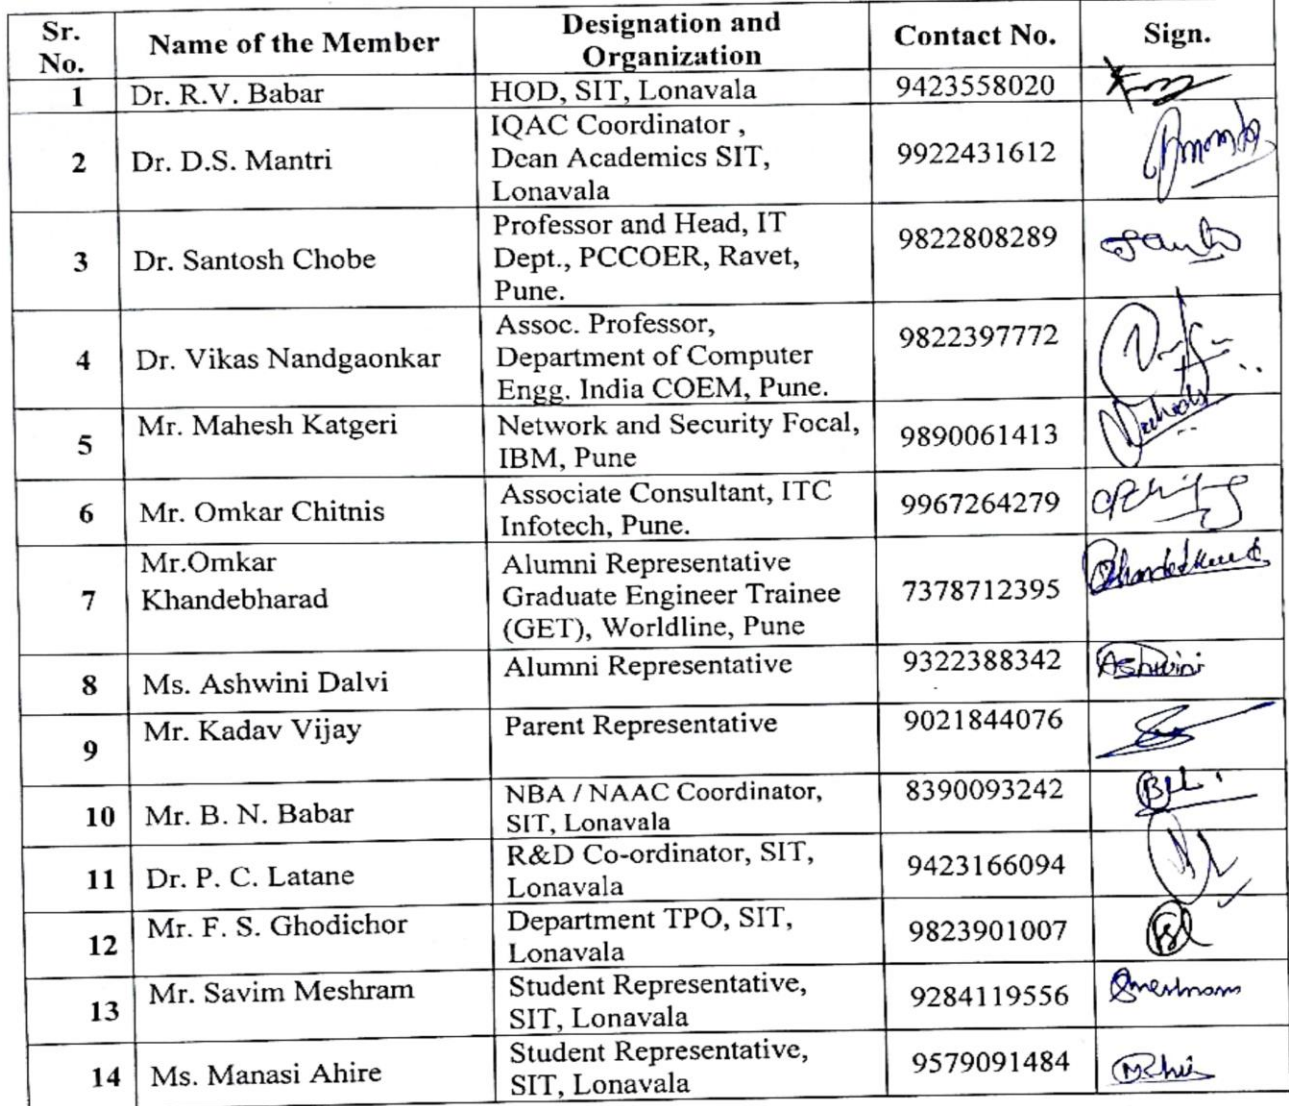 Sr. No. Name of the Member Designation and Organization Contact No. Sign.
1 Dr. R.V. Babar HOD, SIT, Lonavala 9423558020
2 Dr. D.S. Mantri IQAC Coordinator ,
Dean Academics SIT,
Lonavala 9922431612
3 Dr. Santosh Chobe Professor and Head, IT
Dept., PCCOER, Ravet,
Pune. 9822808289
4 Dr. Vikas Nandgaonkar Assoc. Professor,
Department of Computer
Engg. India COEM, Pune. 9822397772
5 Mr. Mahesh Katgeri Network and Security Focal,
IBM, Pune 9890061413
6 Mr. Omkar Chitnis Associate Consultant, ITC
Infotech, Pune. 9967264279
7 Mr.Omkar
Khandebharad Alumni Representative
Graduate Engineer Trainee
(GET), Worldline, Pune 7378712395
8 Ms. Ashwini Dalvi Alumni Representative 9322388342 Ashwini
9 Mr. Kadav Vijay Parent Representative 9021844076
10 Mr. B. N. Babar NBA / NAAC Coordinator,
SIT, Lonavala 8390093242
11 Dr. P. C. Latane R&D Co-ordinator, SIT,
Lonavala 9423166094
12 Mr. F. S. Ghodichor Department TPO, SIT,
Lonavala 9823901007
13 Mr. Savim Meshram Student Representative,
SIT, Lonavala 9284119556
14 Ms. Manasi Ahire Student Representative,
SIT, Lonavala 9579091484